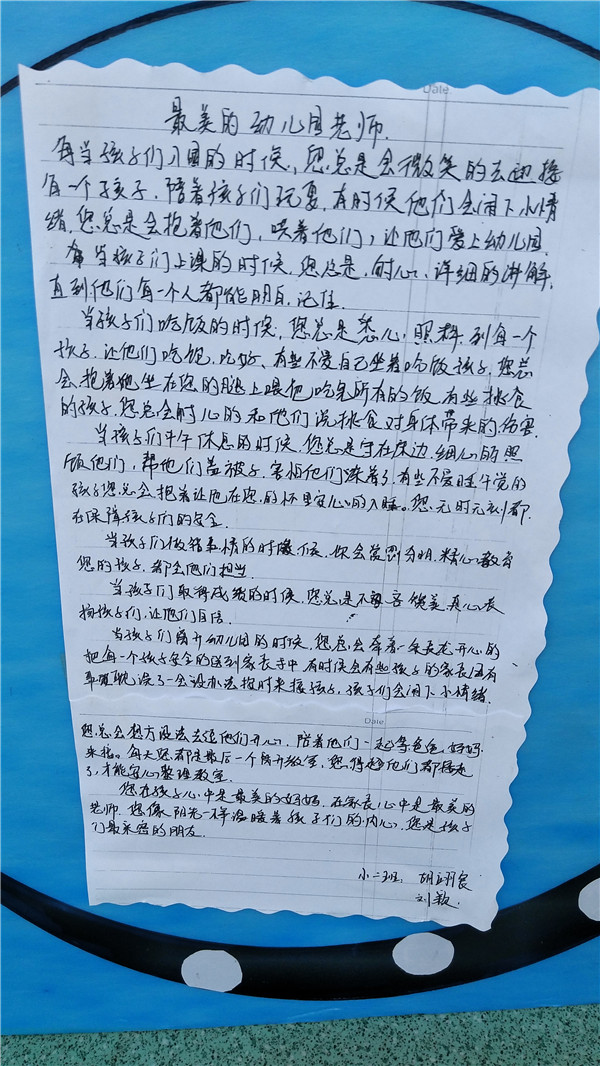 Date
最美的幼儿园老师.
每当孩子们入园的时候,您总是会微笑的去迎接
每一个孩子.陪着孩子们玩耍.有时候他们会闹下小情
绪.您总是会抱着他们,哄着他们,让他们爱上幼儿园.
每当孩子们上课的时候.您总是,耐心、详细的讲解.
直到他们每一个人都能明白,记住.
当孩子们吃饭的时候,您总是悉心照料到每一个
孩子.让他们吃饱.吃好、有些不爱自己坐着吃饭孩子.您总
会抱着他坐在您的腿上喂他吃完所有的饭.有些挑食
的孩子.您总会耐心的和他们说挑食对身体带来的伤害.
当孩子们中午休息的时候.您总是守在床边.细心的照
顾他们,帮他们盖被子.害怕他们冻着了.有些不爱睡午觉的
孩子您总会抱着让他在您的怀里安心的入睡。您无时无刻都
在保障孩子们的安全.
当孩子们做错事情的时候,你会赏罚分明.精心教育
您的孩子,
当孩子们取得成绩的时候.您总是不吝啬赞美.真心表
扬孩子们,让他们自信.
当孩子们离开幼儿园的时候.您总会牵着一条长龙开心的
把每一个孩子安全的送到家长手中.有时候会有些孩子的家长因有
事耽误了一会没办法按时来接孩子,孩子们会闹下小情绪.
Date
您总会想方设法去逗他们开心,陪着他们一起等爸爸,妈妈
来接。每天您都是最后一个离开教室,您得等他们都接走
了,才能安心整理教室.
您在孩子心中是最美的妈妈.在家长心中是最美的
老师.您像阳光一样温暖着孩子们的内心.您是孩子
们最亲密的朋友.
小二班:胡翊宸
刘颖.